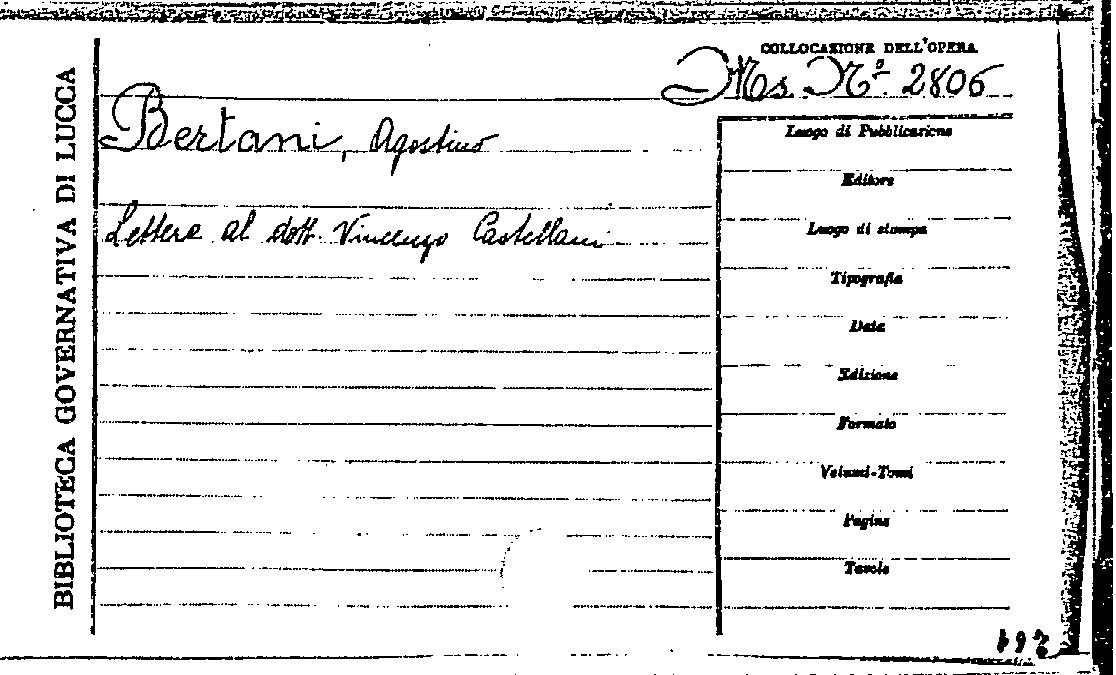 BIBLIOTECA GOVERNATIVA DI LUCCA
COLLOCAZIONE DELL'OPERA
Ms. Nº 2806
Bertani, Agostino
Lettere al dott. Vincenzo Castellani
Luogo di Pubblicazione
Editore
Luogo di stampa
Tipografia
Data
Edizione
Formato
Volumi-Tomi
Pagine
Tavole